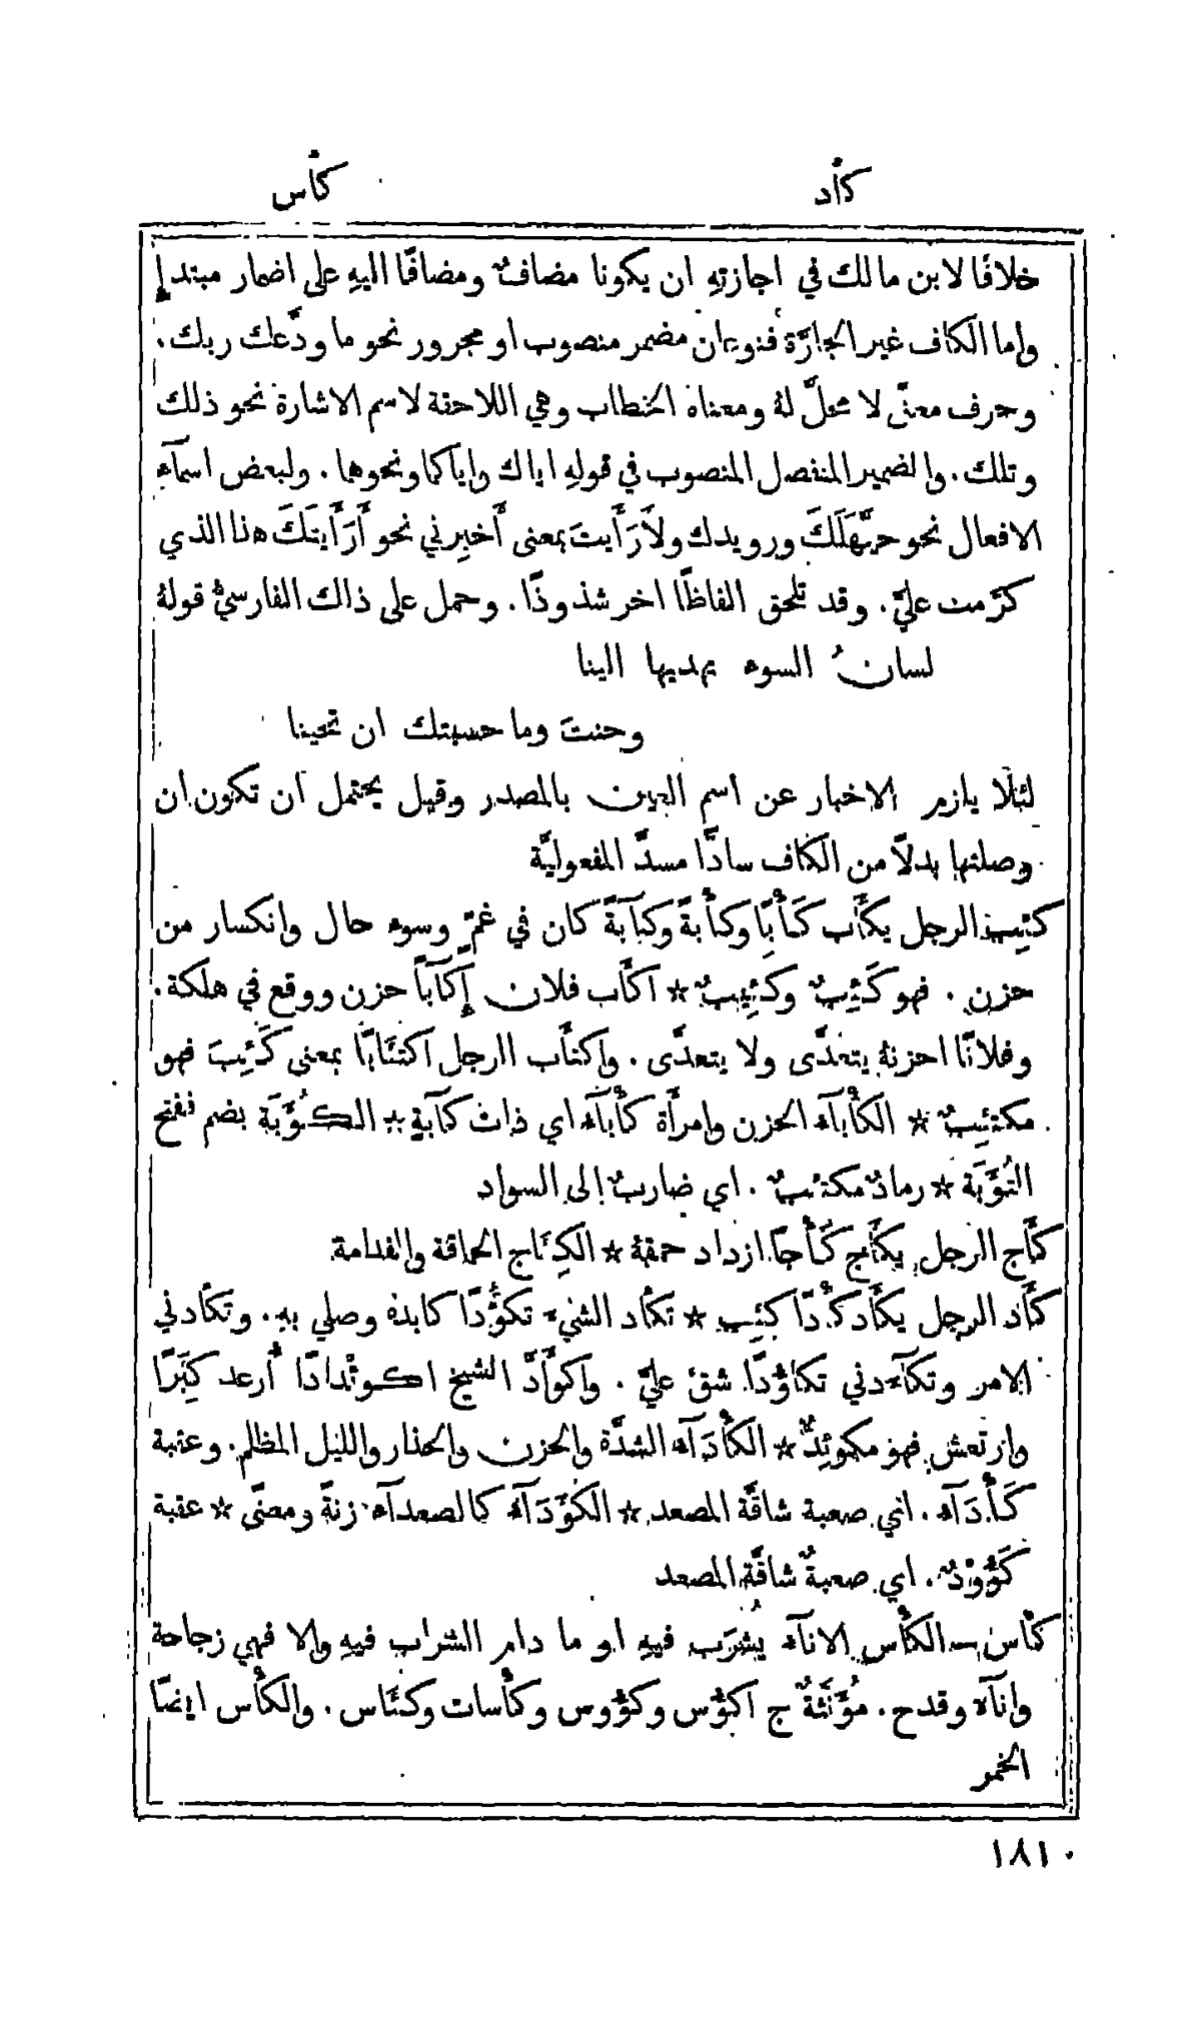 كأد
كأس
خلافًا لابن مالك في اجازتهِ ان يكونا مضافٌ ومضافًا اليهِ على اضمار مبتدإ
واما الكاف غير الجارَّة فنوعان مضمر منصوب او مجرور نحو ما ودَّعك ربك.
وحرف معنًى لا محلَّ لهُ ومعناهُ الخطاب وهي اللاحقة لاسم الاشارة نحو ذلك
وتلك. والضمير المنفصل المنصوب في قولهِ اياك واياكما ونحوهما. ولبعض اسمآء
الافعال نحو حيَّهَلَكَ ورويدك ولاَرَأَيتَ بمعنى أَخبِرني نحو أَرَأَيتَكَ هذا الذي
كرَّمت عليَّ. وقد تلحق الفاظًا اخر شذوذًا. وحمل على ذالك الفارسيُّ قولهُ
لسانُ السوء تهديها الينا
وحنتَ وما حسبتك ان تحينا
لئلَّا يلزم الاخبار عن اسم العين بالمصدر وقيل يحتمل ان تكون ان
وصلتها بدلًا من الكاف سادًّا مسدَّ المفعوليَّة
كَئِب الرجل يكأَب كَأْبًا وكأْبةً وكآبَةً كان في غمٍّ وسوء حال وانكسار من
حزن. فهو كَئِبٌ وكَئِيبٌ * اكأَب فلان إِكآبًا حزن ووقع في هلكة.
وفلانًا احزنهُ يتعدَّى ولا يتعدَّى. واكتأَب الرجل اكتئابًا بمعنى كَئِبَ فهو
مكتئِبٌ * الكأْبآء الحزن وامرأَة كأْبآء اي ذات كآبةٍ * الكُؤَبَة بضم ففتح
التُؤَبَة * رمادٌ مكتئبٌ. اي ضاربٌ الى السواد
كأَج الرجل يكأَج كَأْجًا ازداد حمقهُ * الكِئَاج الحماقة والفدامة
كأَد الرجل يكأَد كأْدًا كئِب * تكأَد الشيءَ تكؤُّدًا كابدهُ وصلي بهِ. وتكأَدني
الامر وتكآءدني تكاؤُدًا شقَّ عليَّ. واكوأَدَّ الشيخ اكوئْدادًا أُرعد كِبَرًا
وارتعش فهو مكوئِدٌّ * الكأْدَآء الشدَّة والحزن والحذار والليل المظلم. وعقبة
كَأْدَآء. اي صعبة شاقَّة المصعد * الكؤَدَآء كالصعدآء زنةً ومعنًى * عقبة
كَؤُوْدٌ. اي صعبةٌ شاقَّة المصعد
كأس ــ الكأْس الانآء يُشرَب فيهِ او ما دام الشراب فيهِ والا فهي زجاجة
وانآء وقدح. مُؤَنثةٌ ج اكؤُس وكؤُوس وكأْسات وكئَاس. والكأْس ايضًا
الخمر
١٨١٠